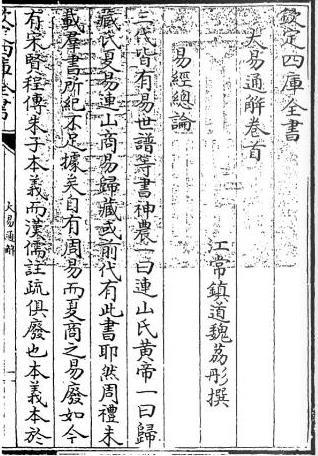 欽定四庫全書
大易通解卷首
江常鎮道魏荔彤撰
易經總論
三代皆有易世譜等書神農一曰連山氏黄帝一曰歸
藏氏夏易連山商易歸藏或前代有此書耶然周禮未
載羣書所紀不足據矣自有周易而夏商之易廢如今
有宋賢程傳朱子本義而漢儒註疏俱廢也本義本於
欽定四庫全書
大易通解